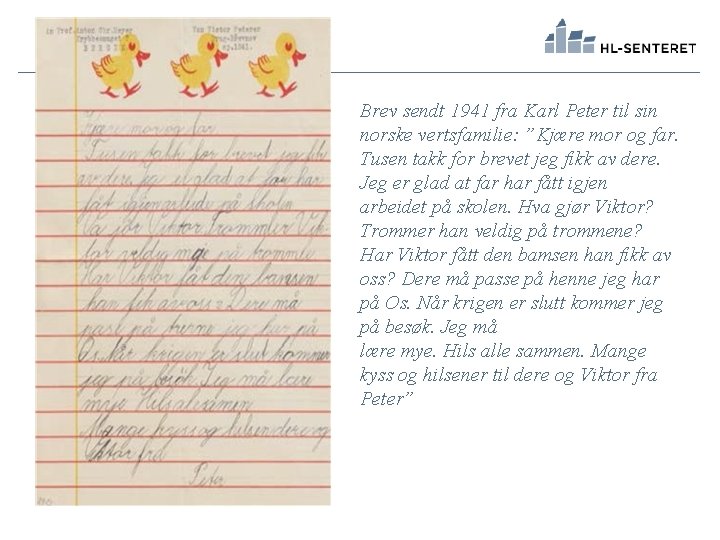 HL-SENTERET
Brev sendt 1941 fra Karl Peter til sin
norske vertsfamilie: ”Kjære mor og far.
Tusen takk for brevet jeg fikk av dere.
Jeg er glad at far har fått igjen
arbeidet på skolen. Hva gjør Viktor?
Trommer han veldig på trommene?
Har Viktor fått den bamsen han fikk av
oss? Dere må passe på henne jeg har
på Os. Når krigen er slutt kommer jeg
på besøk. Jeg må
lære mye. Hils alle sammen. Mange
kyss og hilsener til dere og Viktor fra
Peter”
Kjære mor og far
Tusen takk for brevet jeg fik
av dere. jeg er glad at far har
fåt igjen arbeide på skolen
Viktor trommer
veldig mye på tromle
Har Viktor fåt den bamsen
han fik av oss? Dere må
pase på henne jeg har på
Os. Når krigen er slut kommer
jeg på besøk. Jeg må lære
mye. Hils alesamen
Mange kyss og hilsen dere og
Viktor fra
Peter